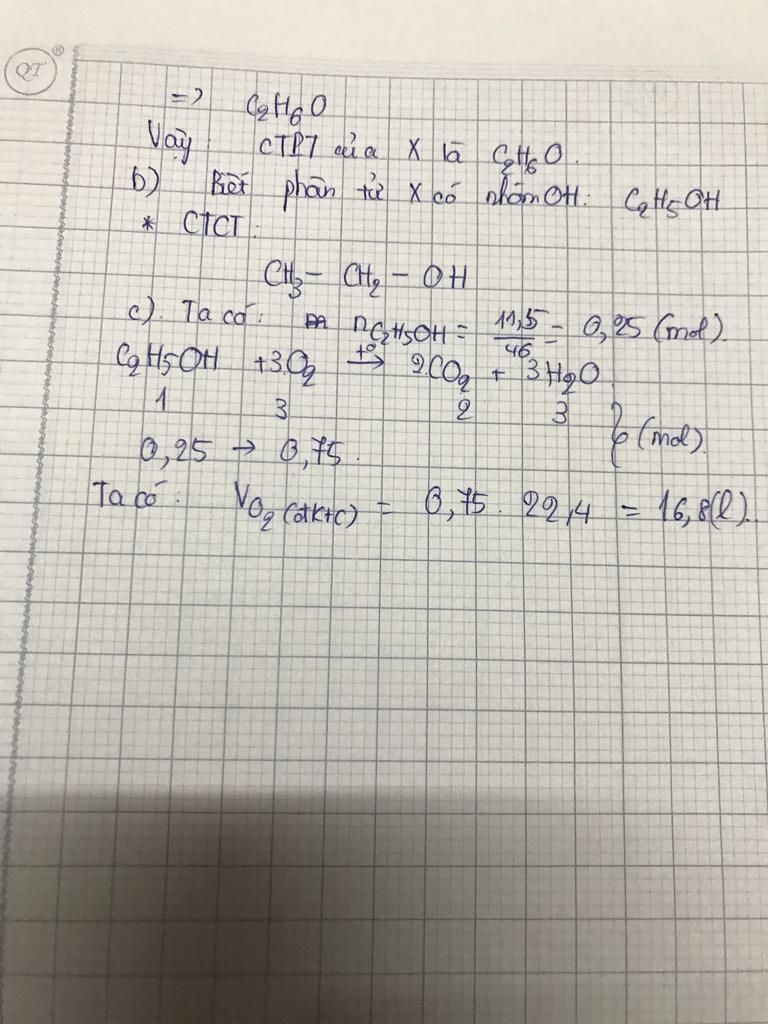 QT
=> C2H6O
Vậy: CTPT của X là C2H6O.
b) Biết phân tử X có nhóm OH: C2H5OH
* CTCT:
CH3 - CH2 - OH
c). Ta có: nC2H5OH = 11,5/46 = 0,25 (mol).
C2H5OH + 3O2 t°→ 2CO2 + 3H2O
1 3 2 3 } (mol)
0,25 → 0,75.
Ta có: VO2(đktc) = 0,75. 22,4 = 16,8(l).